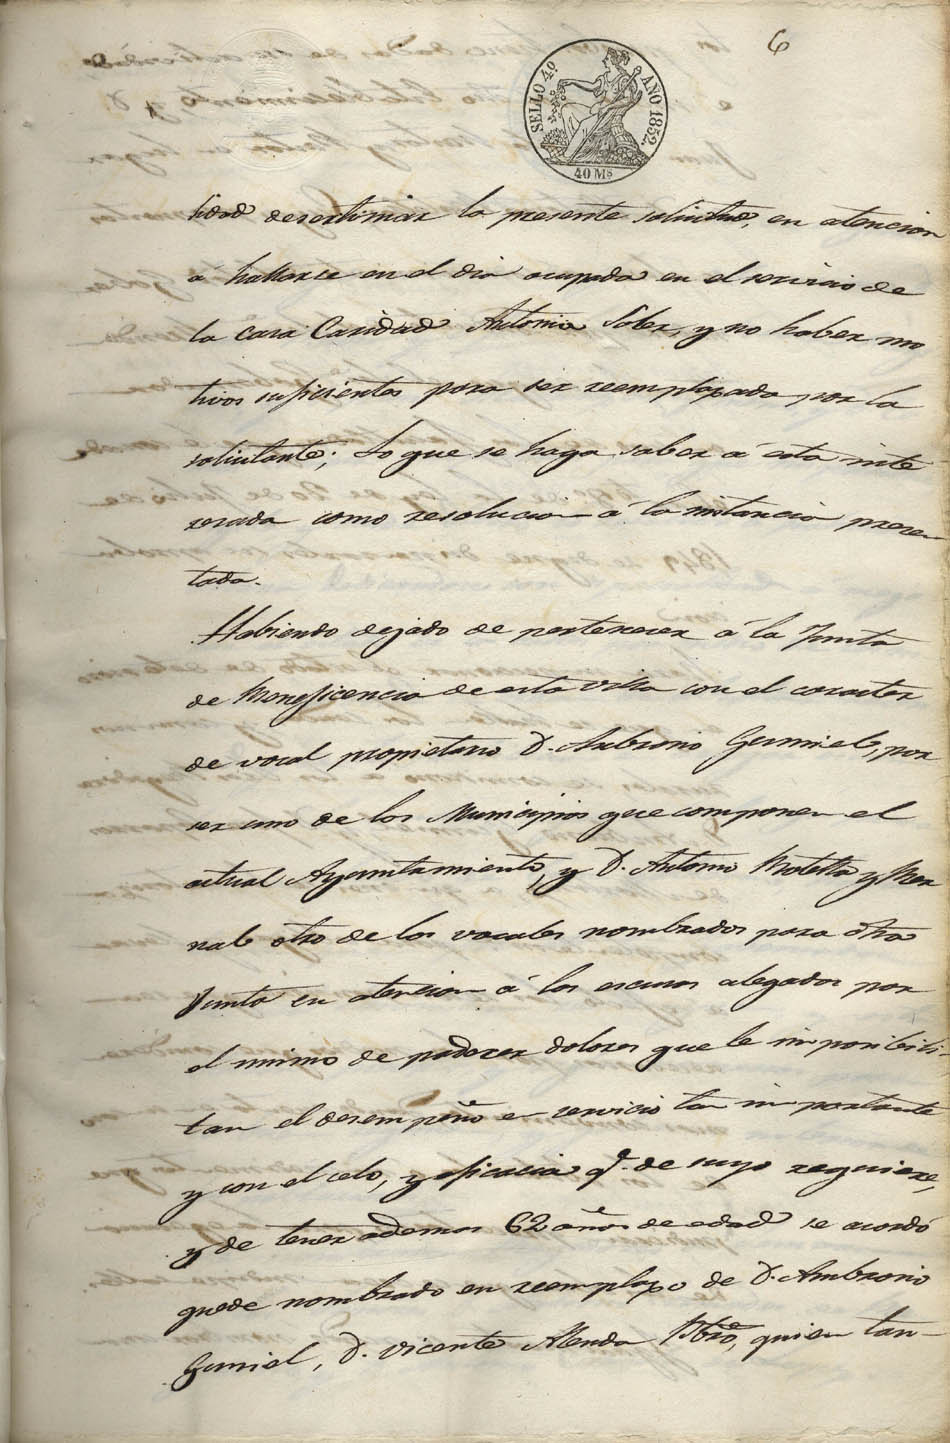 6
SELLO 4º AÑO 1852.
40 Ms
lidad desestimar la presente solicitud, en atencion
á hallarse en el dia ocupada en el servicio de
la casa Caridad Antonia Soler, y no haber mo
tivos suficientes para ser reemplazada por la
solicitante; Lo que se haga saber á esta inte
resada como resolucion á la instancia presen
tada.
Habiendo dejado de pertenecer á la Junta
de Beneficencia de esta villa con el caracter
de vocal propietario D. Ambrosio Gumiel, por
ser uno de los Municipios que componen el
actual Ayuntamiento, y D. Antonio y Ber
nal otro de los vocales nombrados para dha
Junta en atencion á los escusos alegados por
el mismo de padecer dolores que le imposibili-
tan el desempeño en servicio tan importante
y con el celo, y eficacia q.e de suyo requiere,
y de tener ademas 62 años de edad se acordó
quede nombrado en reemplazo de D. Ambrosio
Gumiel, D. Vicente Menda Pbro, quien tan-